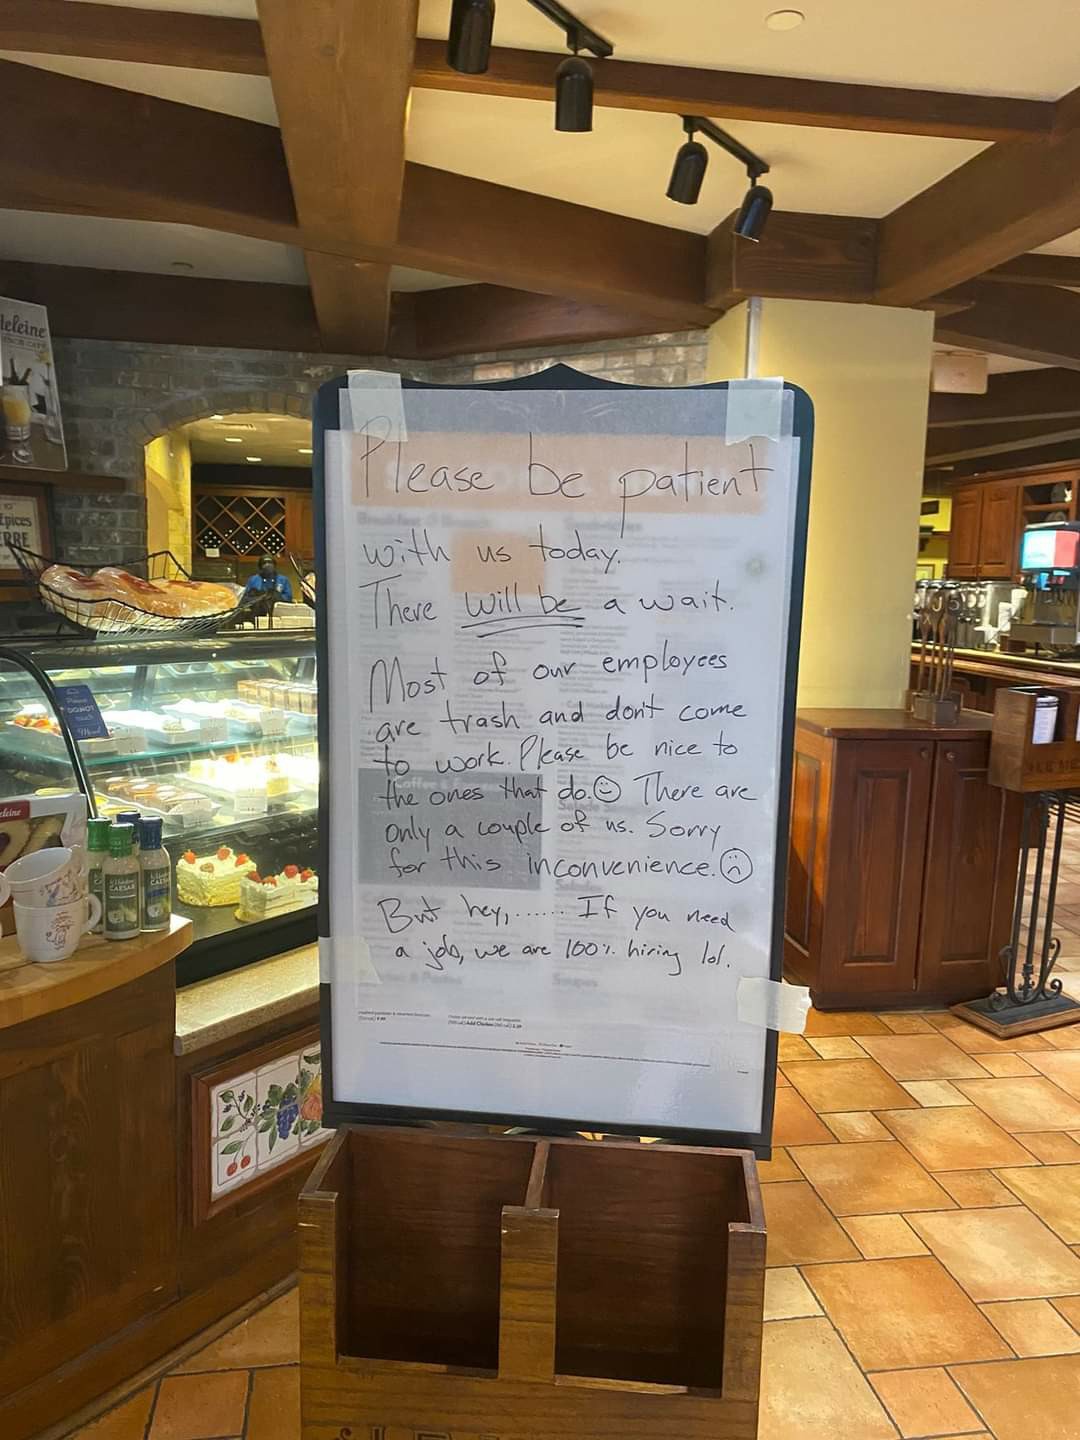 Please be patient
with us today.
There will be a wait.
Most of our employees
are trash and don't come
to work. Please be nice to
the ones that do.☺ There are
only a couple of us. Sorry
for this inconvenience.☹
But hey,...... If you need
a job, we are 100% hiring lol.
DO NOT
CAESAR
CAESAR